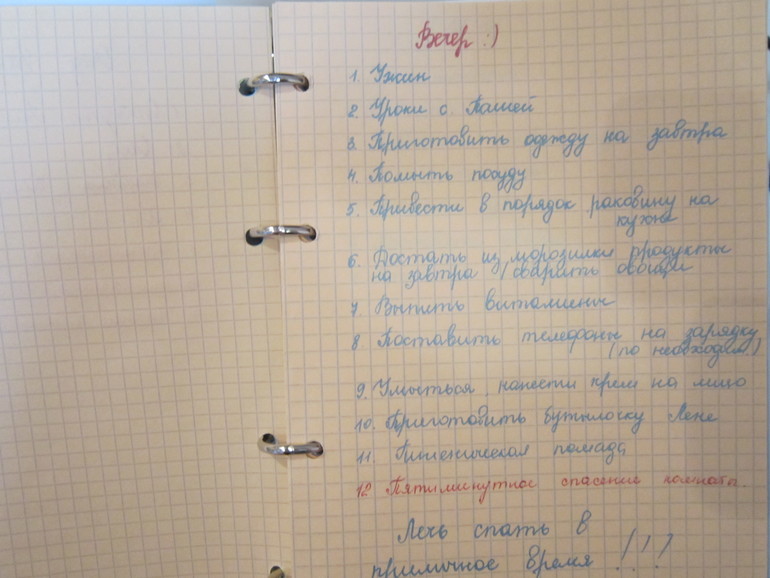 Вечер :)
1. Ужин
2. Уроки с Пашей
3. Приготовить одежду на завтра
4. Помыть посуду
5. Привести в порядок раковину на
кухне
6. Достать из морозилки продукты
на завтра / сварить овощи
7. Выпить витамины
8. Поставить телефоны на зарядку
(по необходим.)
9. Умыться, нанести крем на лицо
10. Приготовить бутылочку Лене
11. Гигиеническая помада
12. Пятиминутное спасение комнаты
Лечь спать в
приличное время !!!